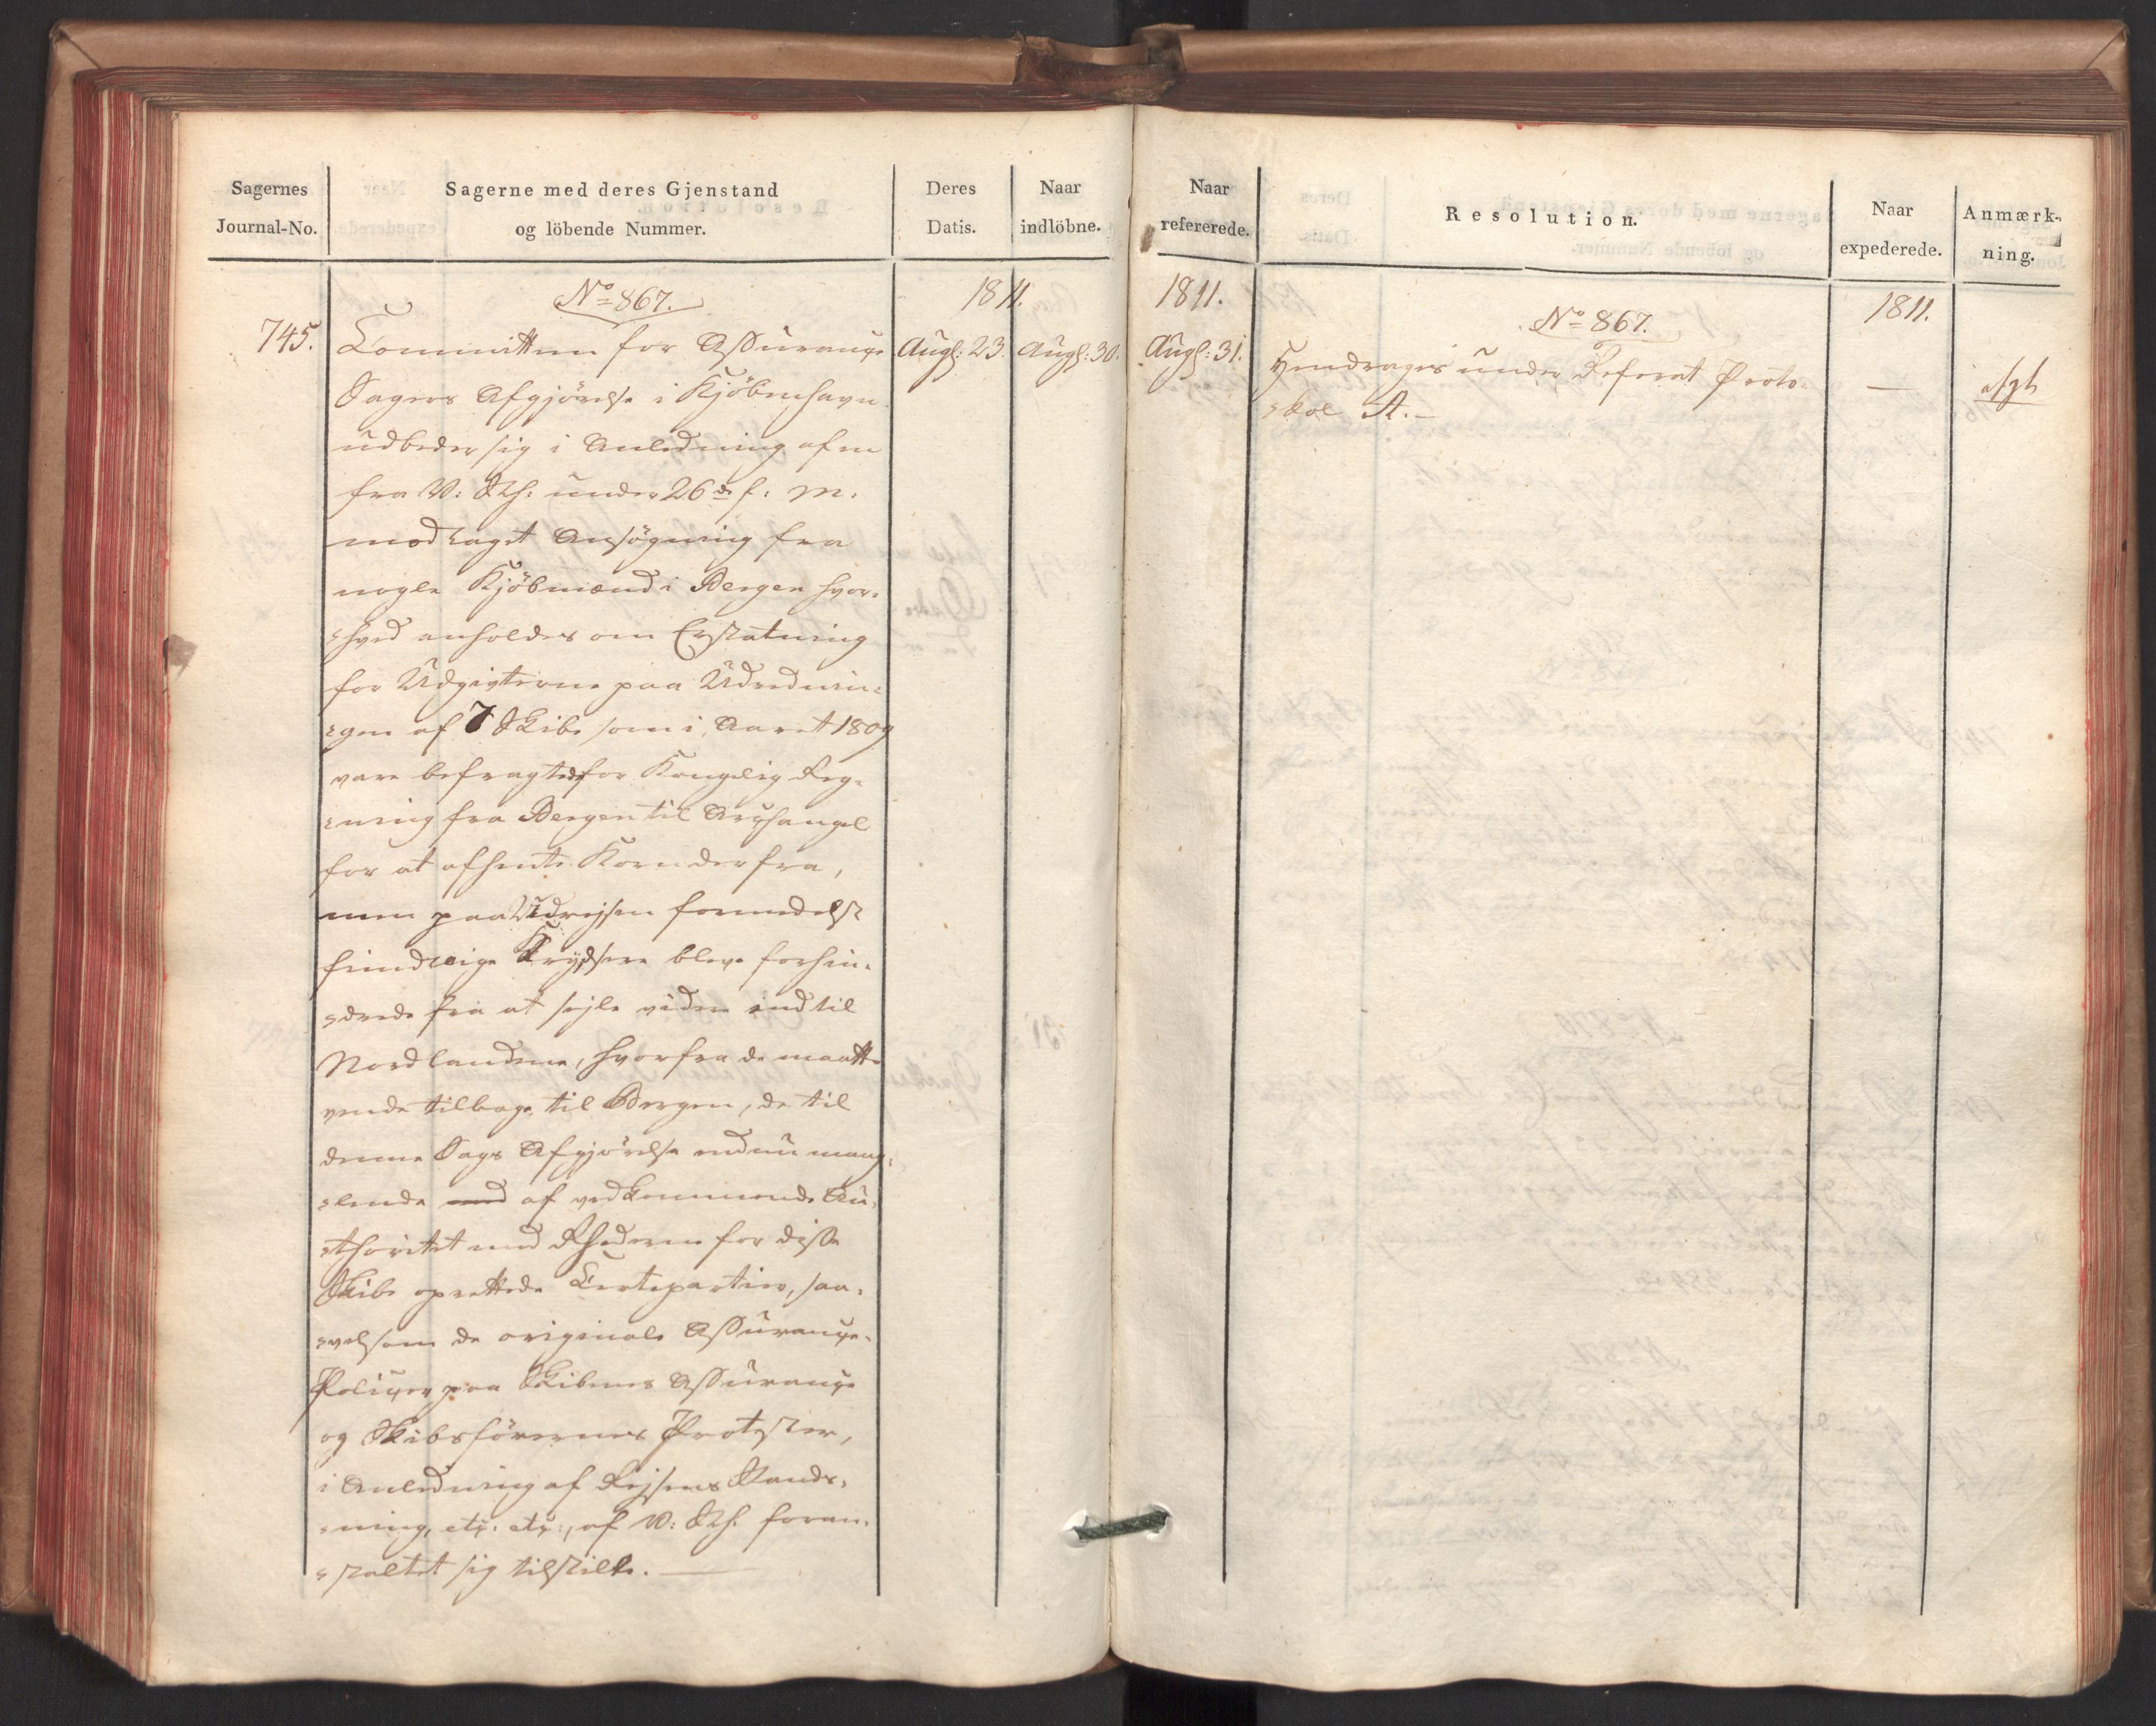 Sagernes
Journal-No.
Sagerne med deres Gjenstand
og löbende Nummer.
Deres
Datis.
Naar
indlöbne.
No 867.
1811.
745.
Augs: 23.
Augs: 30.
Committeen for Assurance
Sagers Afgjörelse i Kjöbenhavn
udbeder sig i Anledning af en
fra V: St: under 26de f: M:
modtaget Ansögning fra
nogle Kjöbmænd i Bergen hvor-
hved anholdes om Erstatning
for Udgivterne paa Udrednin-
gen af 7 Skibe som i Aaret 1809
vare befragtede for Kongelig Reg-
ning fra Bergen til Archangel
for at afhente Korn derfra,
men paa Udrejsen formedelst
fiendtlige Krydsere bleve forhin-
drede fra at sejle videre end til
Nordlandene, hvorfra de maatte
vende tilbage til Bergen, de til
denne Sags Afgjörelse endnu mang-
lende af vedkommende Au-
thoritet med Rhederne for disse
Skibe oprettede Certepartier, saa-
velsom de originale Assurance-
Policer paa Skibenes Assurance
og Skibsförernes Protester,
i Anledning af Rejsens Stands-
ning, etc: etc:, af V: St: foran-
staltet sig tilstillet.
Naar
refererede.
Resolution.
Naar
expederede.
Anmærk-
ning.
1811.
Augs: 31.
No 867.
1811.
Hendrages under Referat Proto-
kol A.
afgt